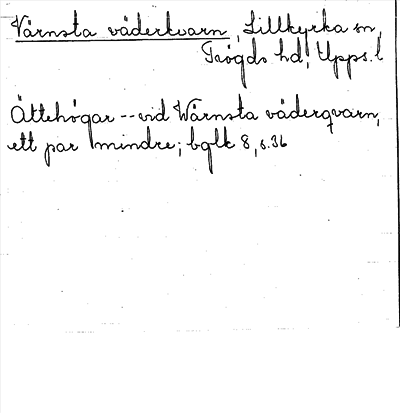 Värnsta väderkvarn, Lillkyrka sn,
Trögds hd, Upps. l
Ättehögar -- vid Wärnsta väderqvarn,
ett par mindre; bglk 8, s. 36